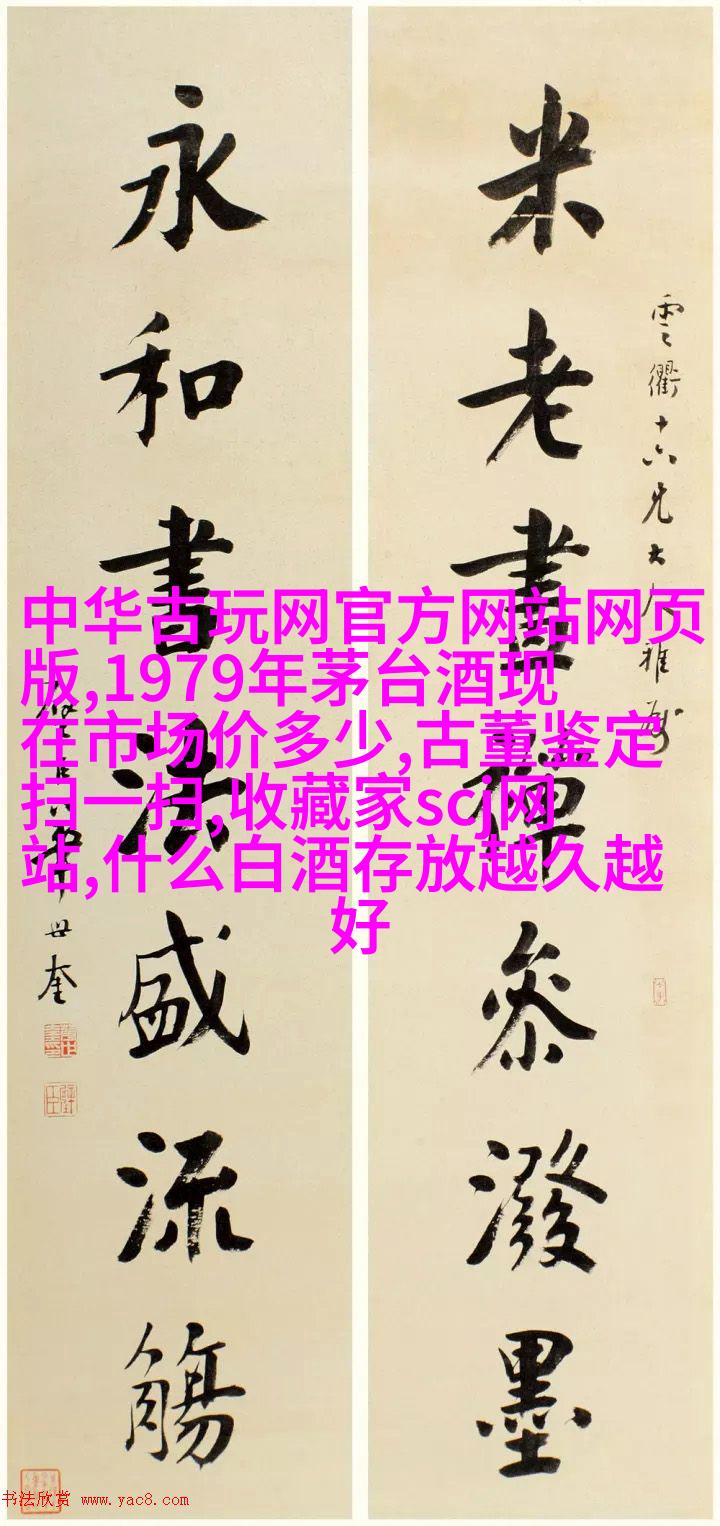 雲衢十六兄大人雅屬
米老畫禪參潑墨
永和書法盛流觴
華世奎
中华古玩网官方网站网页
版,1979年茅台酒现
在市场价多少,古董鉴定
扫一扫,收藏家scj网
站,什么白酒存放越久越
好
书法欣赏 www.yac8.com